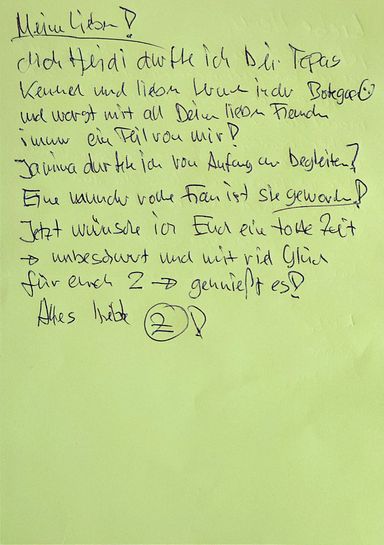 Meine Lieben!
dich Heidi durfte ich bei Tapas
kennen und lieben lernen in der Bodega
und warst mit all Deinen lieben Freunden
immer ein Teil von mir!
Janina durfte ich von Anfang an begleiten!
Eine wundervolle Frau ist sie geworden!
Jetzt wünsche ich Euch eine tolle Zeit
→ unbeschwert und mit viel Glück
für euch 2 → genießt es!
Alles Liebe 2!